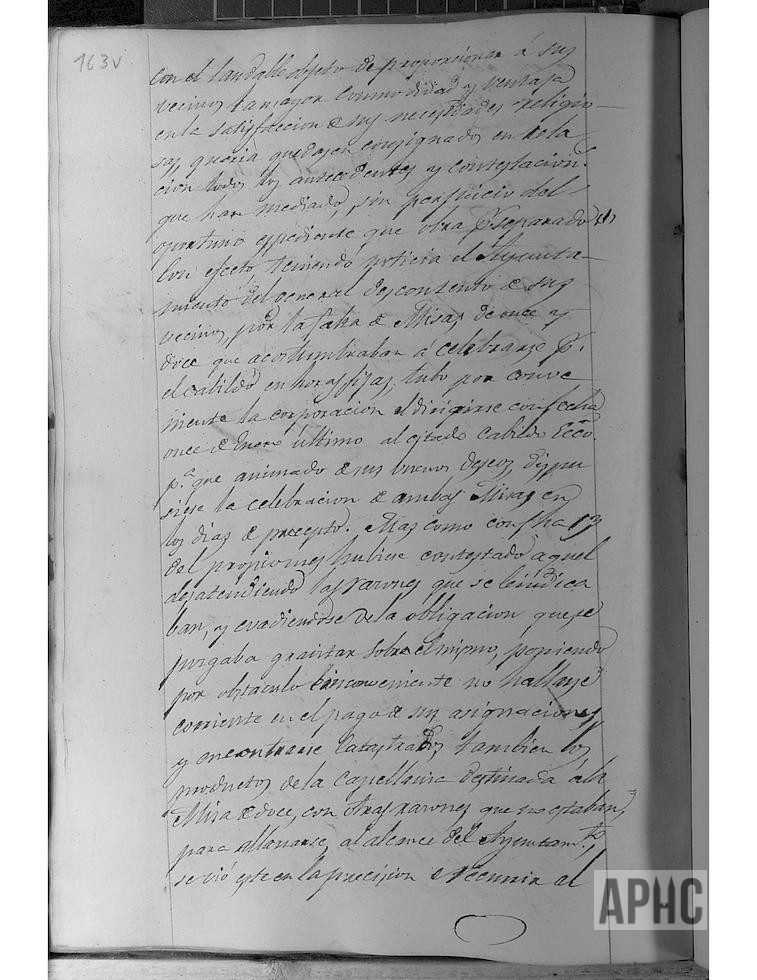 163v
con el laudable objeto de proporcionar á sus
vecinos la mayor commodidad y ventaja
en la satisfaccion de sus necesidades religio-
sas, queria quedasen consignados en rela
cion todos los antecedentes y contestacion.s
que han mediado, sin perjuicio del
oportuno espediente que obra p.r separado
Con efecto, teniendo noticia el Ayunta-
miento del general descontento de sus
vecinos, por la falta de Misas de once y
doce que acostumbraban á celebrarse p.r
el cabildo en horas fijas, tubo por conve
niente la corporacion el dirigirse con fecha
once de Enero último al citado Cabildo Ecco.
p.a que animado de sus buenos deseos, dispu
siese la celebracion de ambas Misas en
los dias de precepto. Mas como con fha 13
del propio mes hubiese contestado aquel
desatendiendo las razones que se le indica
ban, y evadiendose de la obligacion que se
juzgaba gravitar sobre el mismo, poniendo
por obstaculo é inconveniente no hallarse
corriente en el pago de sus asignaciones,
y encontrarse Catastrados tambien los
productos de la Capellania destinada á la
Misa de doce, con otras razones que no estaban
para allanarse, al alcance del Ayuntam.to,
se vió este en la precision de recurrir al
APHC